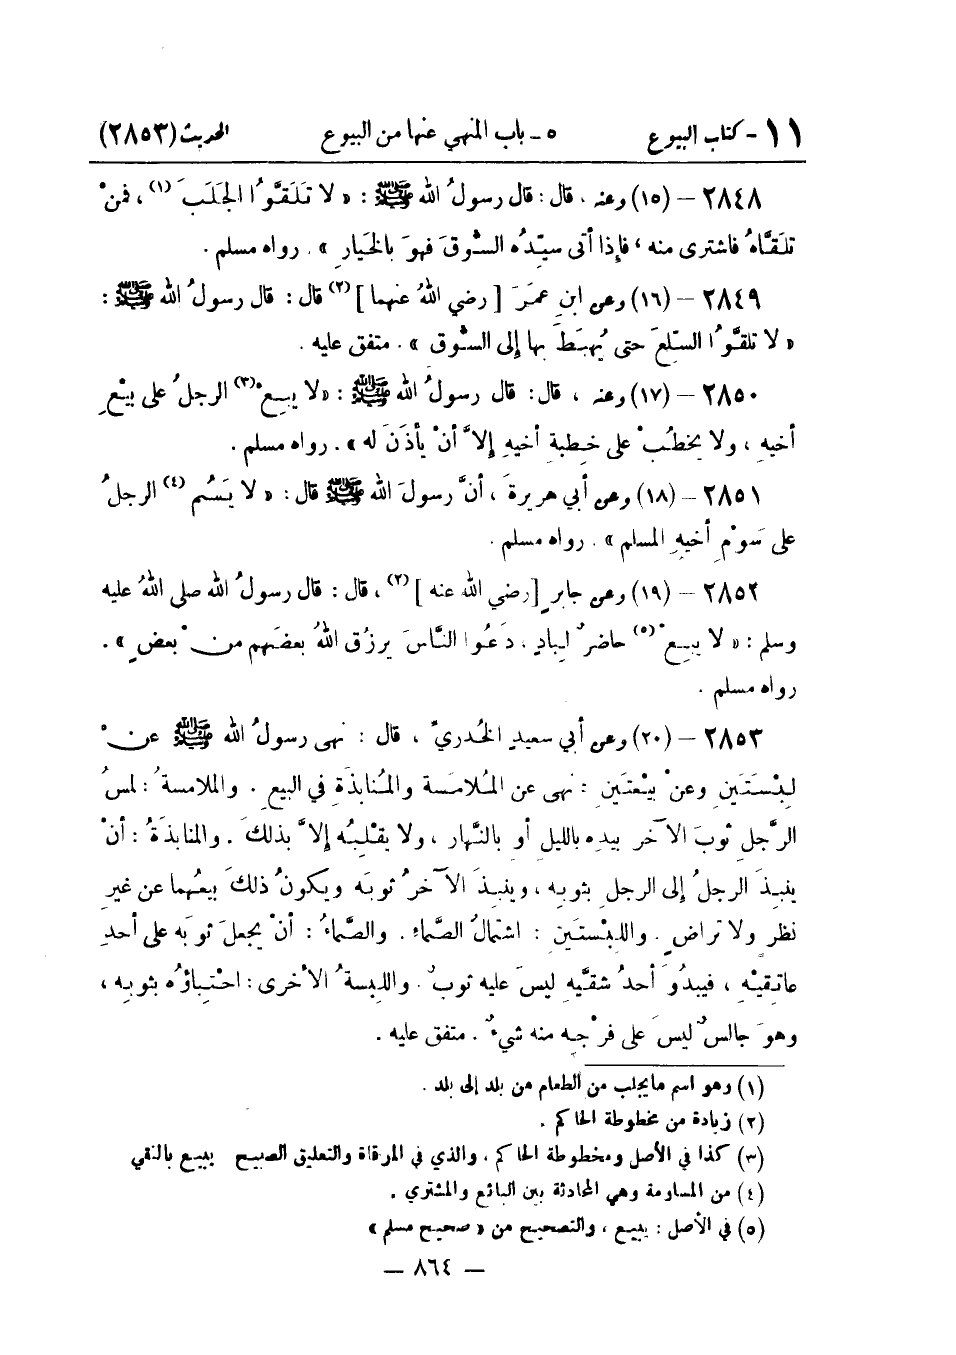 ١١ - كتاب البيوع ٥ - باب المنهي عنها من البيوع الحديث (٢٨٥٣)
٢٨٤٨ - (١٥) وعنه ، قال : قال رسولُ الله ﷺ : « لا تَلَقَّوُا الجَلَبَ (١) ، فمنْ
تلَقَّاهُ فاشترى منه ، فإذا أتى سيّدُه السُّوقَ فهوَ بالخيارِ » . رواه مسلم .
٢٨٤٩ - (١٦) وعن ابنِ عمَرَ [ رضي اللهُ عنهما ] (٢) قال : قال رسولُ الله ﷺ :
« لا تلقَّوُا السّلعَ حتى يُهبَطَ بها إلى السُّوق » . متفق عليه .
٢٨٥٠ - (١٧) وعنه ، قال : قال رسولُ الله ﷺ : «لا يبِعْ (٣) الرجلُ على بيْعِ
أخيهِ ، ولا يخطُبْ على خِطبةِ أخيهِ إلاَّ أنْ يأذَنَ له » . رواه مسلم .
٢٨٥١ - (١٨) وعن أبي هريرةَ ، أنَّ رسولَ الله ﷺ قال : « لا يَسُم (٤) الرجلُ
على سَوْمِ أخيهِ المسلم » . رواه مسلم .
٢٨٥٢ - (١٩) وعن جابرٍ [رضي الله عنه ] (٢) ، قال : قال رسولُ الله صلى اللهُ عليه
وسلم : « لا يبِعْ (٥) حاضرٌ لبادٍ ، دَعُوا النَّاسَ يرزُق اللهُ بعضَهم من ْ بعضٍ » .
رواه مسلم .
٢٨٥٣ - (٢٠) وعن أبي سعيدٍ الخُدريّ ، قال : نهى رسولُ الله ﷺ عنْ
لِبْستَيْنِ وعنْ بيْعتَيْنِ : نهى عن المُلامَسة والمُنابَذَةِ في البيعِ . والملامسةُ : لمسُ
الرَّجلِ ثوبَ الآخر بيدِه بالليلِ أو بالنَّهار ، ولا يقْلِبُه إلاَّ بذلكَ . والمنابذَةُ : أنْ
ينبِذَ الرجلُ إلى الرجلِ بثوبِه ، وينبِذَ الآخرُ ثوبَه ويكونُ ذلكَ بيعَهما عن غيرِ
نظرٍ ولا تراضٍ . واللِبْستَيْنِ : اشتمالُ الصَّماءِ . والصَّماءُ : أنْ يجعلَ ثوبَه على أحدِ
عاتِقيْهِ ، فيبدُوَ أحدُ شقَّيهِ ليسَ عليه ثوبٌ . واللبسةُ الأخرى : احْتِباؤُه بثوبِه ،
وهوَ جالسٌ ليسَ على فرْجِه منه شيءٌ . متفق عليه .
(١) وهو اسم مايجلب من الطعام من بلد إلى بلد .
(٢) زيادة من مخطوطة الحاكم .
(٣) كذا في الأصل ومخطوطة الحاكم ، والذي في المرقاة والتعليق الصبيح يبيع بالنفي
(٤) من المساومة وهي المحادثة بين البائع والمشتري .
(٥) في الأصل : يبيع ، والتصحيح من « صحيح مسلم »
— ٨٦٤ —